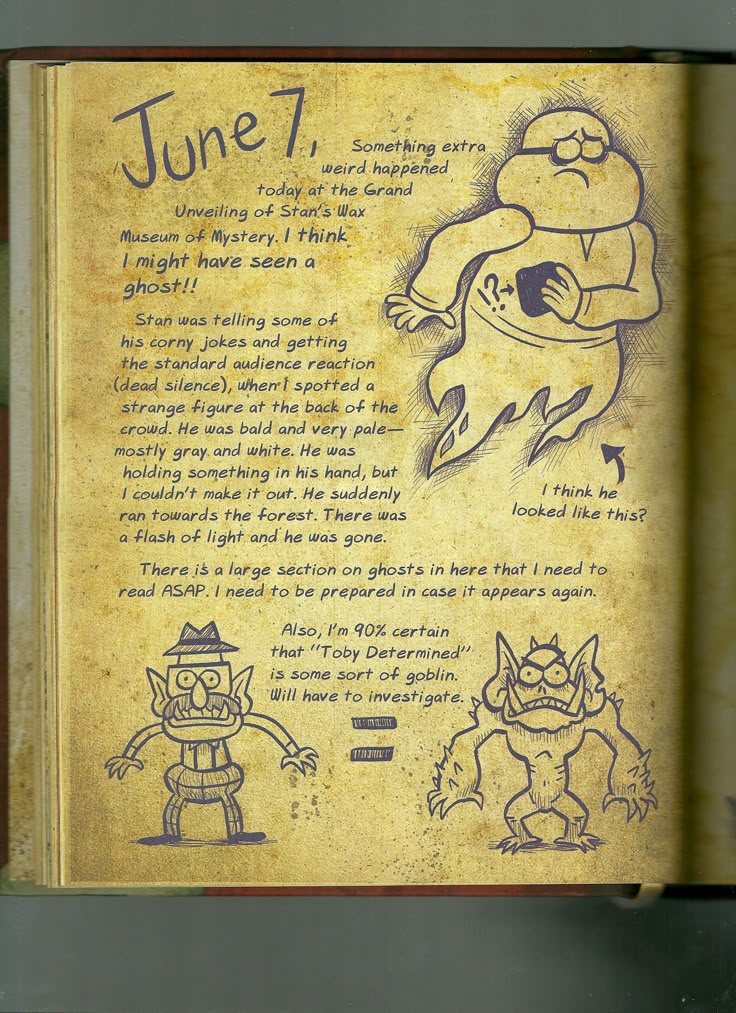 June 7,
Something extra
weird happened
today at the Grand
Unveiling of Stan's Wax
Museum of Mystery. I think
I might have seen a
ghost!!
Stan was telling some of
his corny jokes and getting
the standard audience reaction
(dead silence), when I spotted a
strange figure at the back of the
crowd. He was bald and very pale—
mostly gray and white. He was
holding something in his hand, but
I couldn't make it out. He suddenly
ran towards the forest. There was
a flash of light and he was gone.
!?
I think he
looked like this?
There is a large section on ghosts in here that I need to
read ASAP. I need to be prepared in case it appears again.
Also, I'm 90% certain
that "Toby Determined"
is some sort of goblin.
Will have to investigate.
=